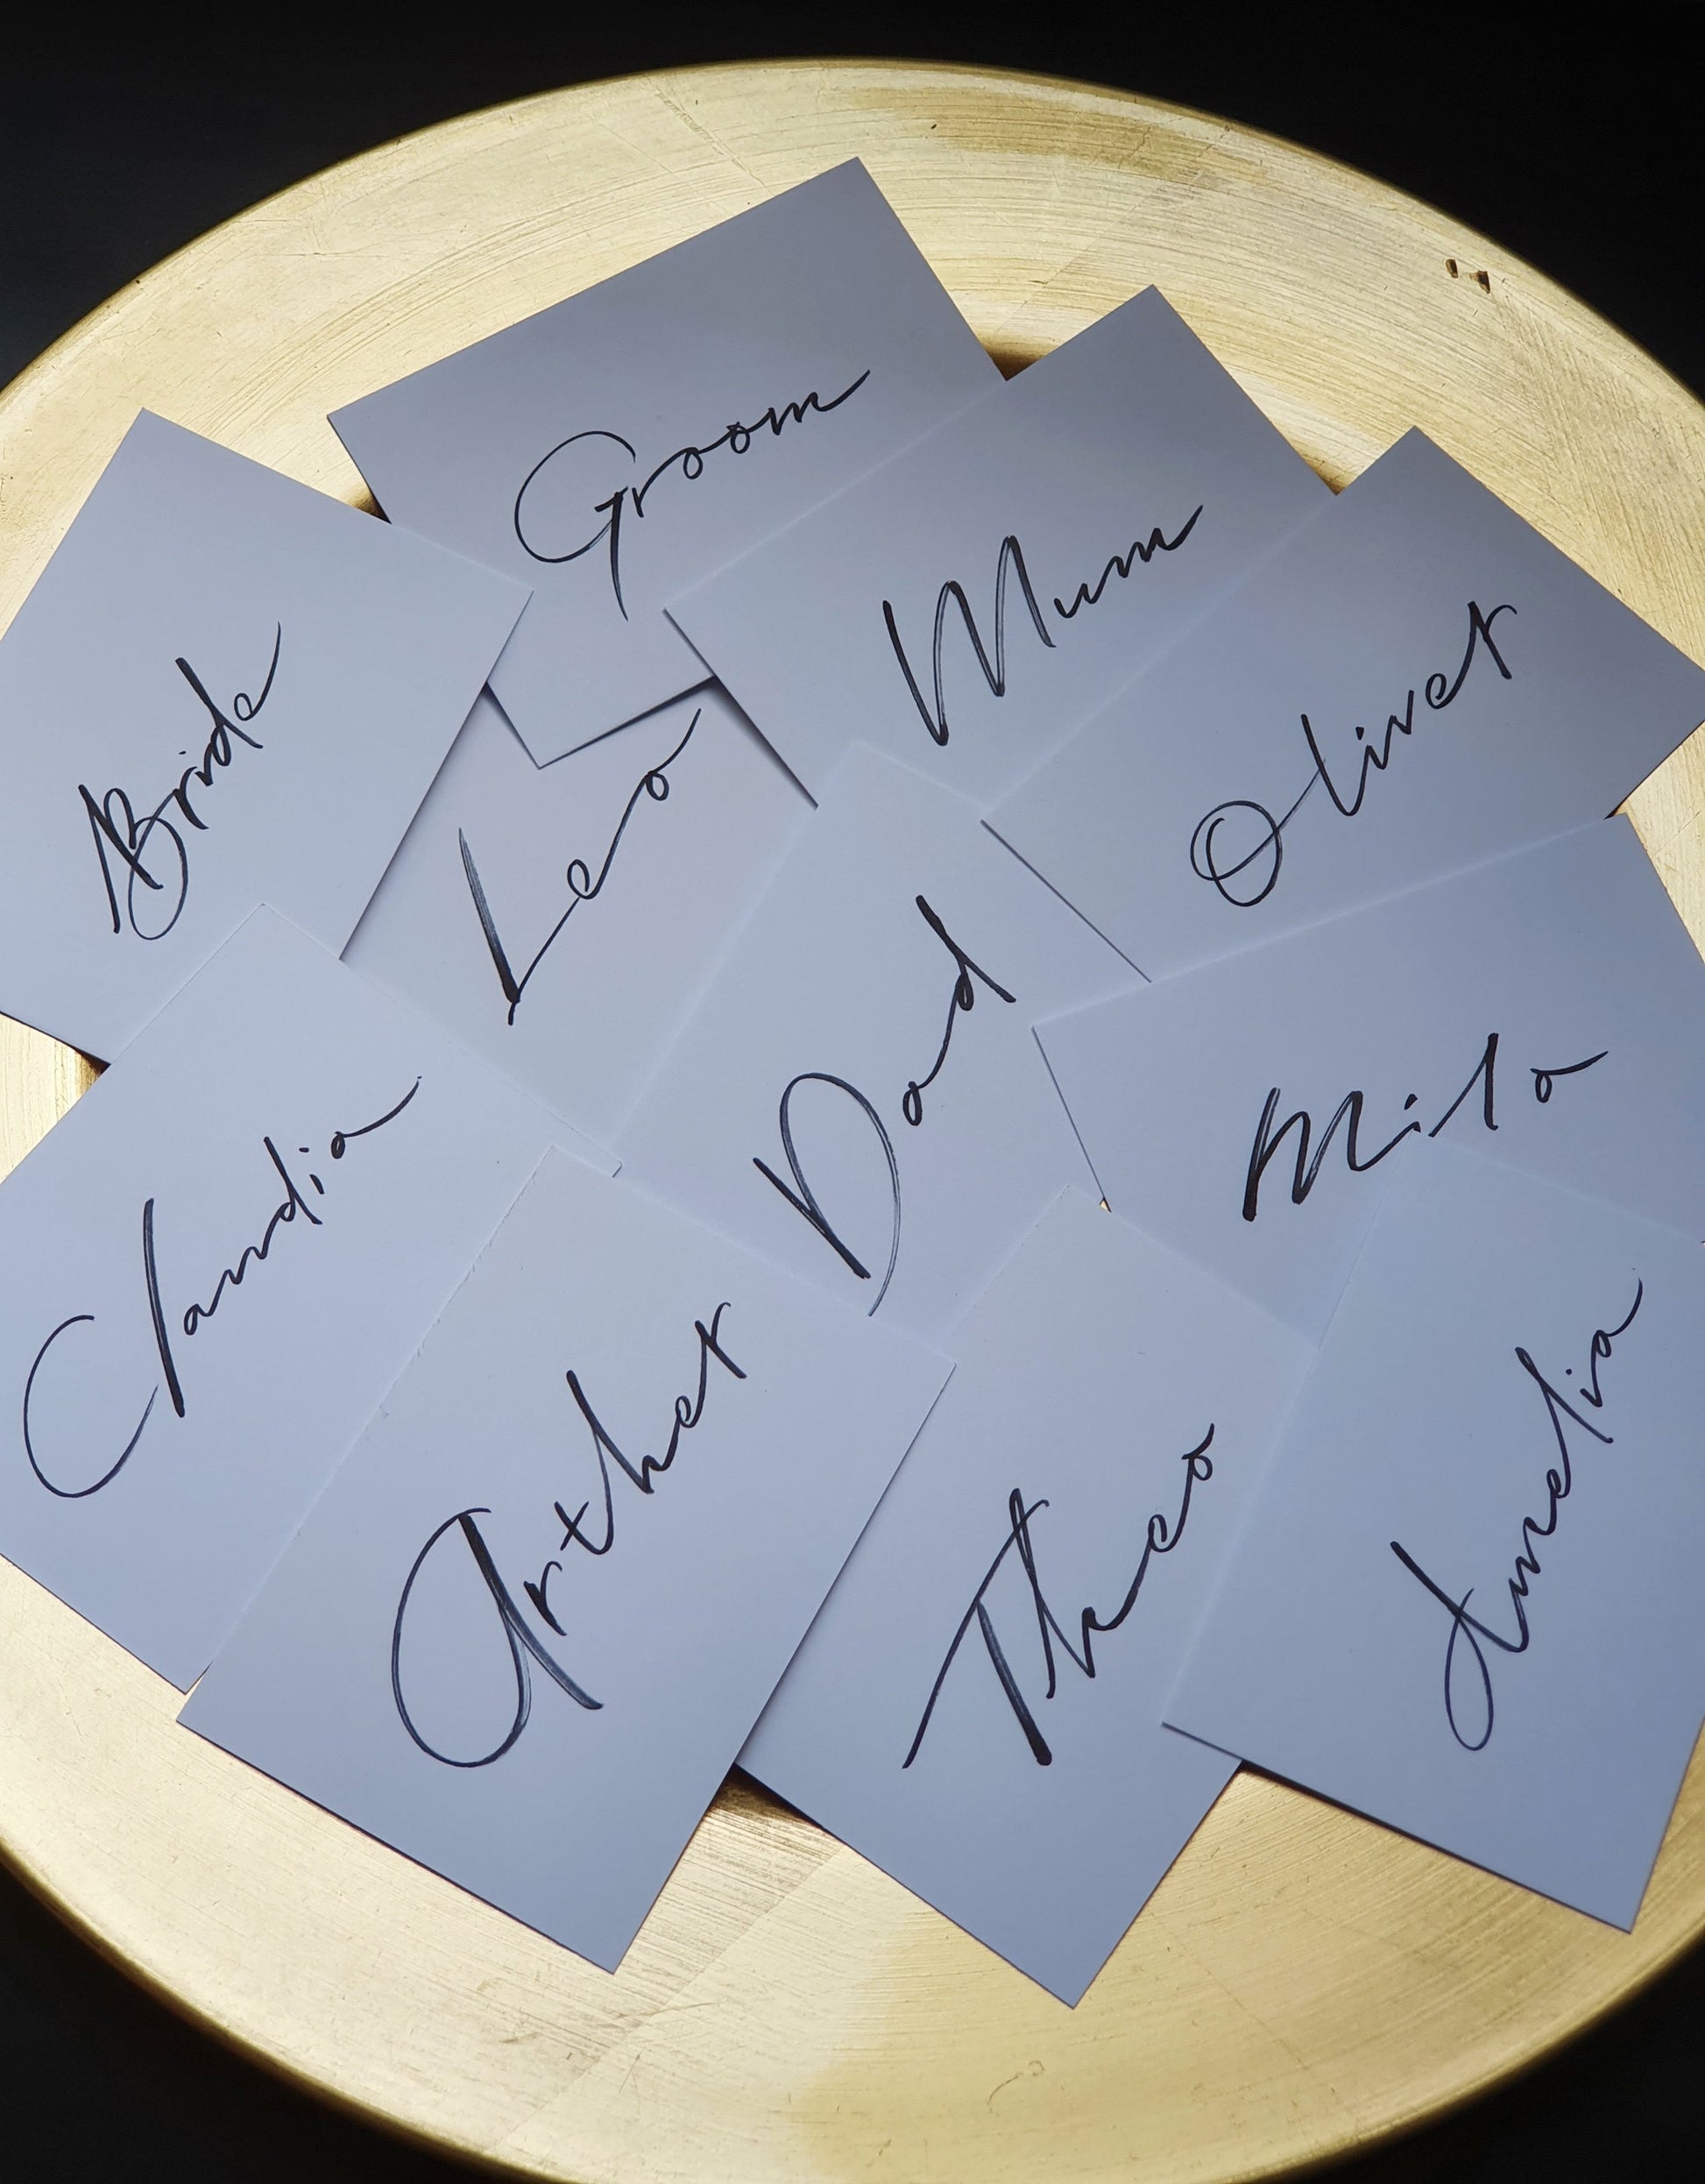 Groom
Mum
Bride
Oliver
Leo
Dad
Mila
Claudia
Arther
Theo
Amelia